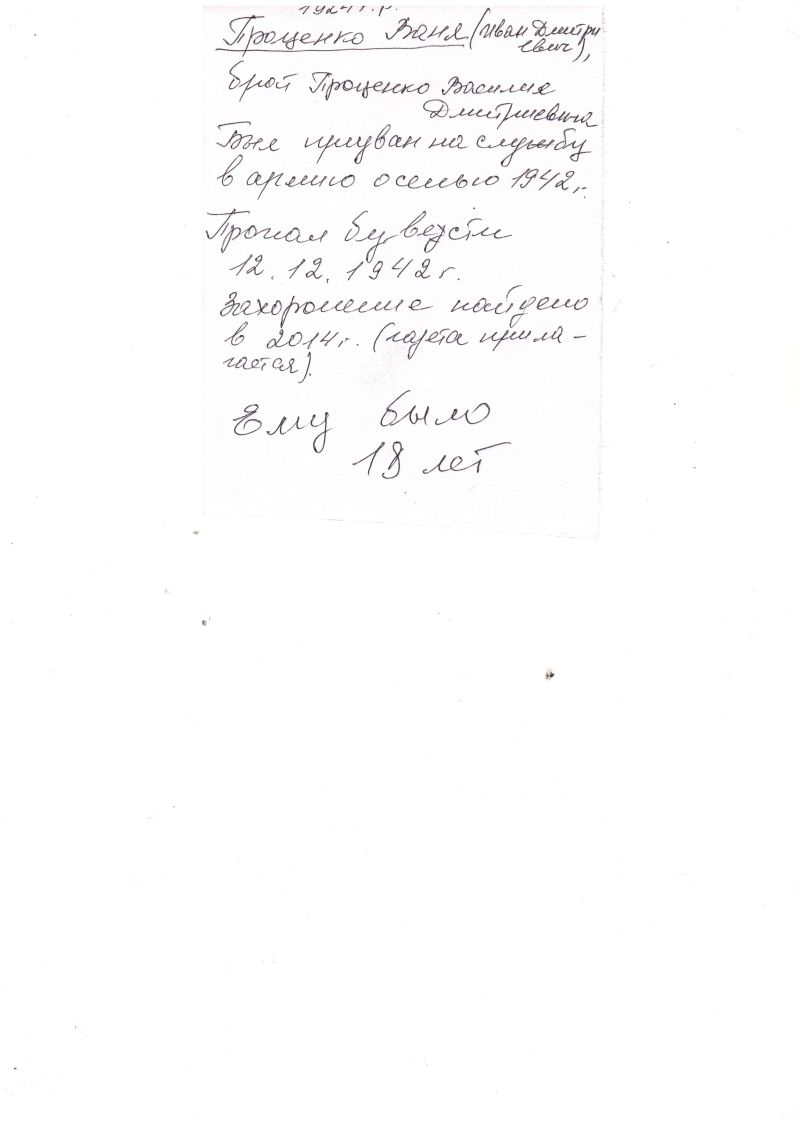 1924 г.р.
Проценко Ваня (Иван Дмитри
евич),
брат Проценко Василия
Дмитриевича
Был призван на службу
в армию осенью 1942г.
Пропал без вести
12.12.1942г.
Захоронение найдено
в 2014г. (газета прила-
гается).
Ему было
18 лет